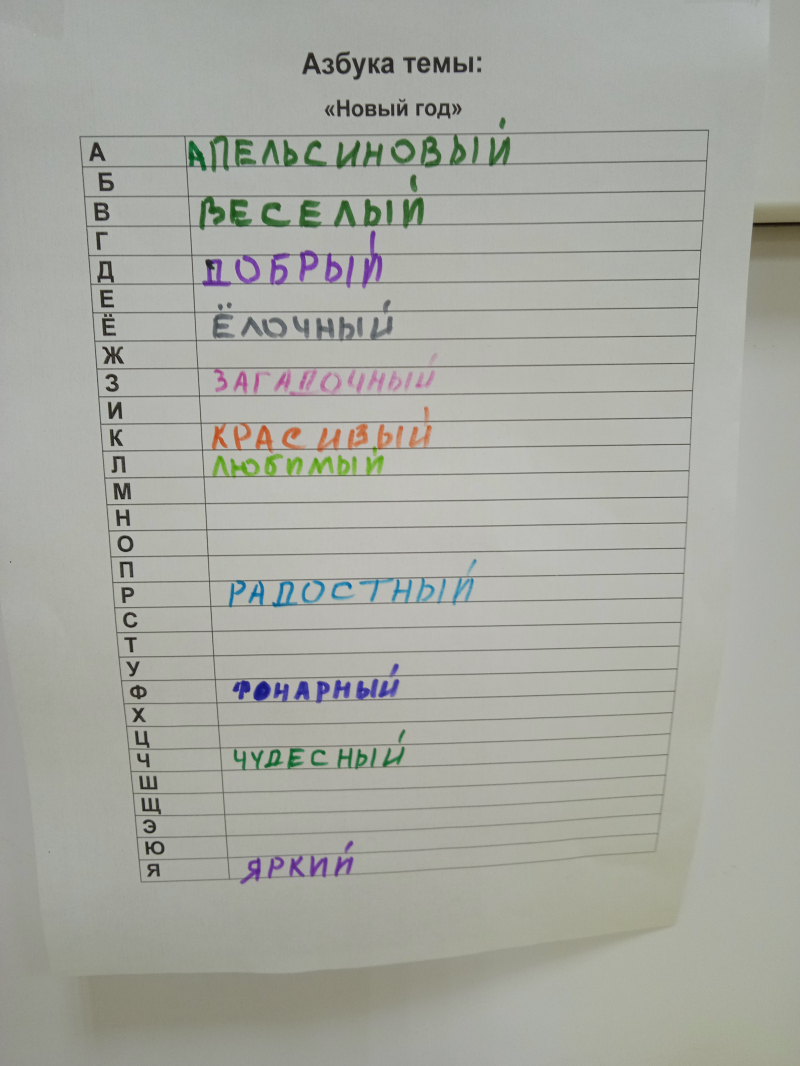 Азбука темы:
«Новый год»
А АПЕЛЬСИНОВЫЙ
Б
В ВЕСЕЛЫЙ
Г
Д ДОБРЫЙ
Е
Ё ЁЛОЧНЫЙ
Ж
З ЗАГАДОЧНЫЙ
И
К КРАСИВЫЙ
Л ЛЮБИМЫЙ
М
Н
О
П
Р РАДОСТНЫЙ
С
Т
У
Ф ФОНАРНЫЙ
Х
Ц
Ч ЧУДЕСНЫЙ
Ш
Щ
Э
Ю
Я ЯРКИЙ